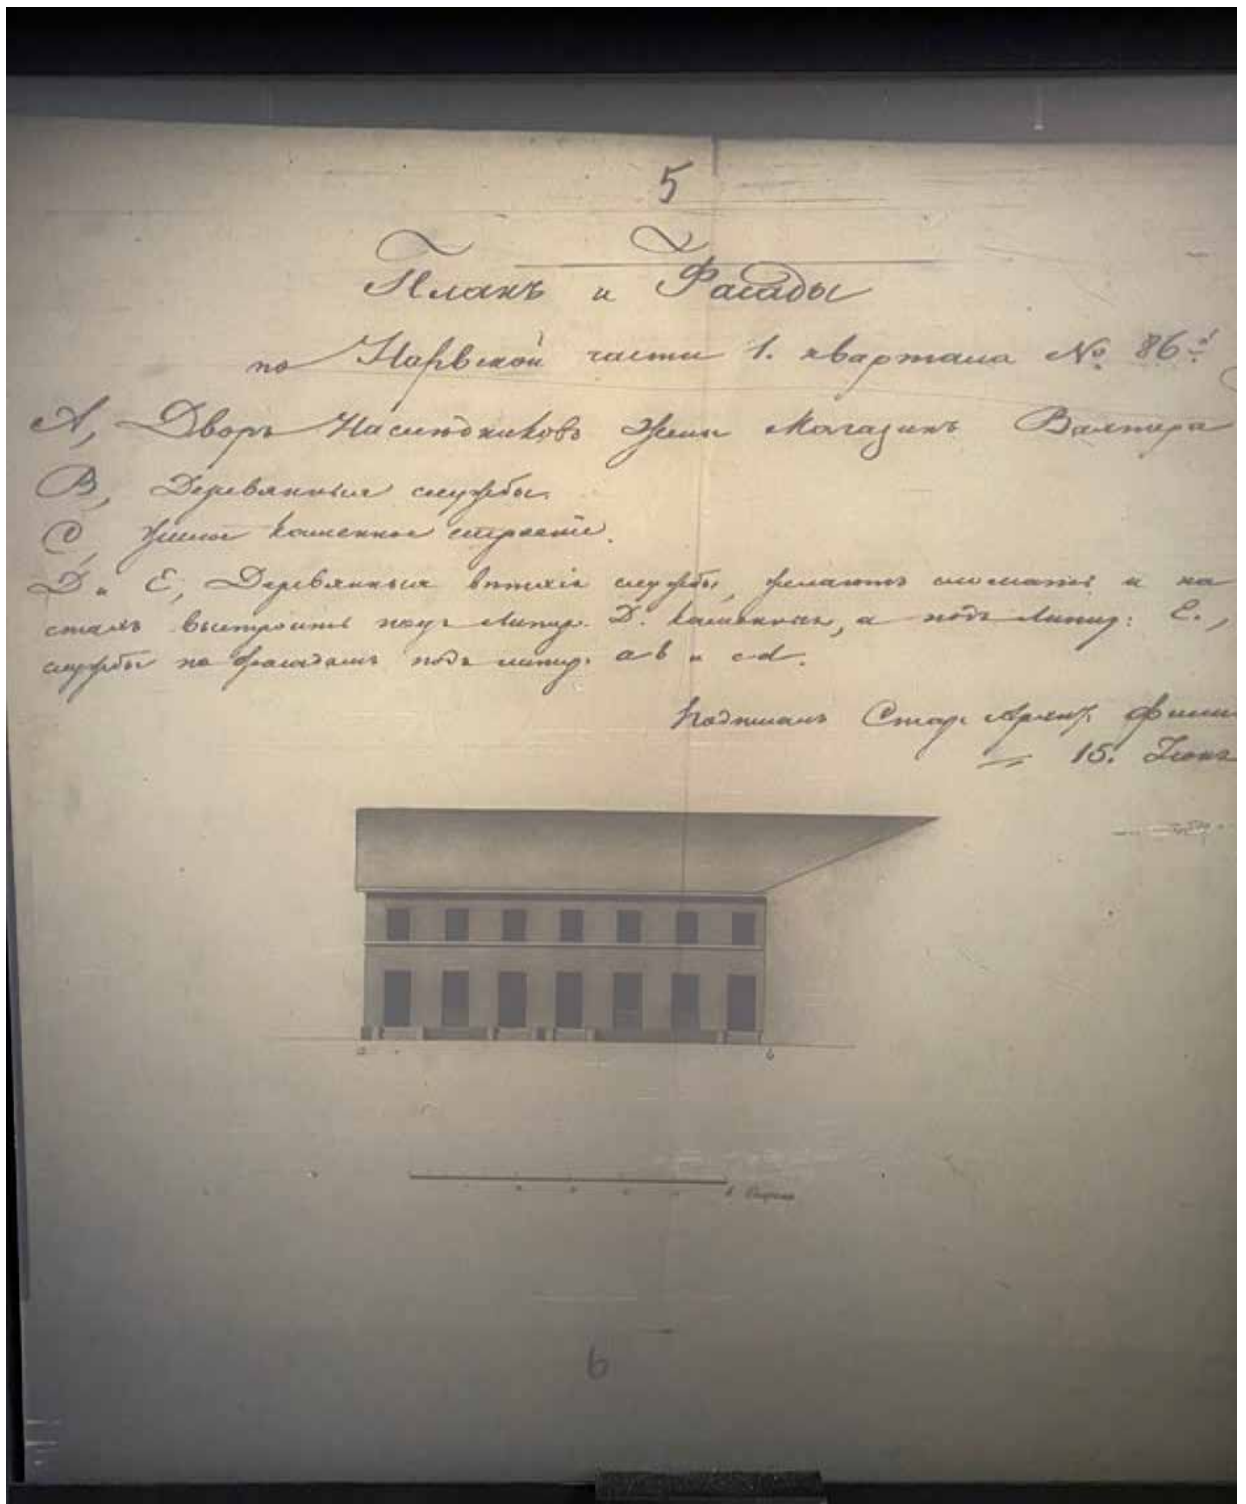 5
Планъ и Фасады
по Нарвской части 1. квартала № 86й
A, Дворъ Наслѣдниковъ Валтера
B, Деревянныя службы.
C, каменное строенiе.
D и E, Деревянныя ветхiя службы, желаютъ сломать и на
выстроить подъ Литер. D. каменныя, а подъ Литер: E.,
службы по фасадамъ подъ литер. ab и cd.
Подписалъ Стар. Архит.
15. Iюня
a b
6